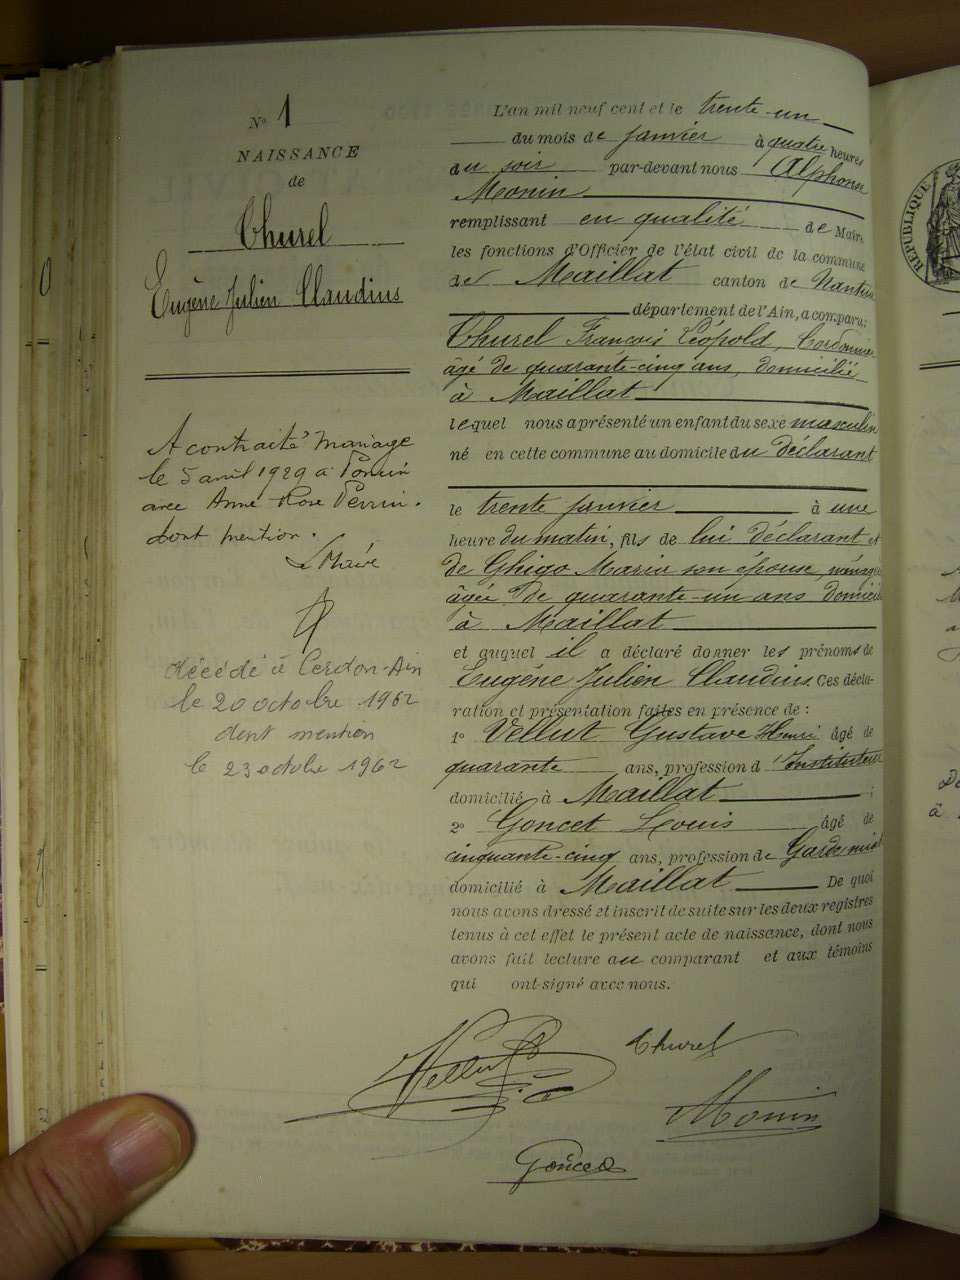 N° 1
NAISSANCE
de
Thurel
Eugène Julien Claudius
A contraité mariage
le 5 avril 1929 à Poncin
avec Anne Rose Perrin.
dont mention.
Le Maire
décédé à Cerdon-Ain
le 20 octobre 1962
dont mention
le 23 octobre 1962
L'an mil neuf cent et le trente-un
du mois de Janvier à quatre heures
du soir par-devant nous Alphonse
Monin
remplissant en qualité de Maire
les fonctions d'Officier de l'état civil de la commune
de Maillat canton de Nantua
département de l'Ain, a comparu:
Thurel François Léopold, Cordonnier
âgé de quarante-cinq ans, domicilié
à Maillat
lequel nous a présenté un enfant du sexe masculin
né en cette commune au domicile du déclarant
le trente janvier à une
heure du matin, fils de lui déclarant et
de Ghigo Maria son épouse, ménagè
âgée de quarante-un ans domicili
à Maillat
et auquel il a déclaré donner les prénoms de
Eugène Julien Claudius. Ces décla-
ration et présentation faites en présence de :
1° Vellut Gustave Henri âgé de
quarante ans, profession d'Instituteur
domicilié à Maillat ;
2° Goncet Louis âgé de
cinquante-cinq ans, profession de Garde-
domicilié à Maillat De quoi
nous avons dressé et inscrit de suite sur les deux registres
tenus à cet effet le présent acte de naissance, dont nous
avons fait lecture au comparant et aux témoins
qui ont signé avec nous.
Vellut Thurel
Monin
Goncet
REPUBLIQUE